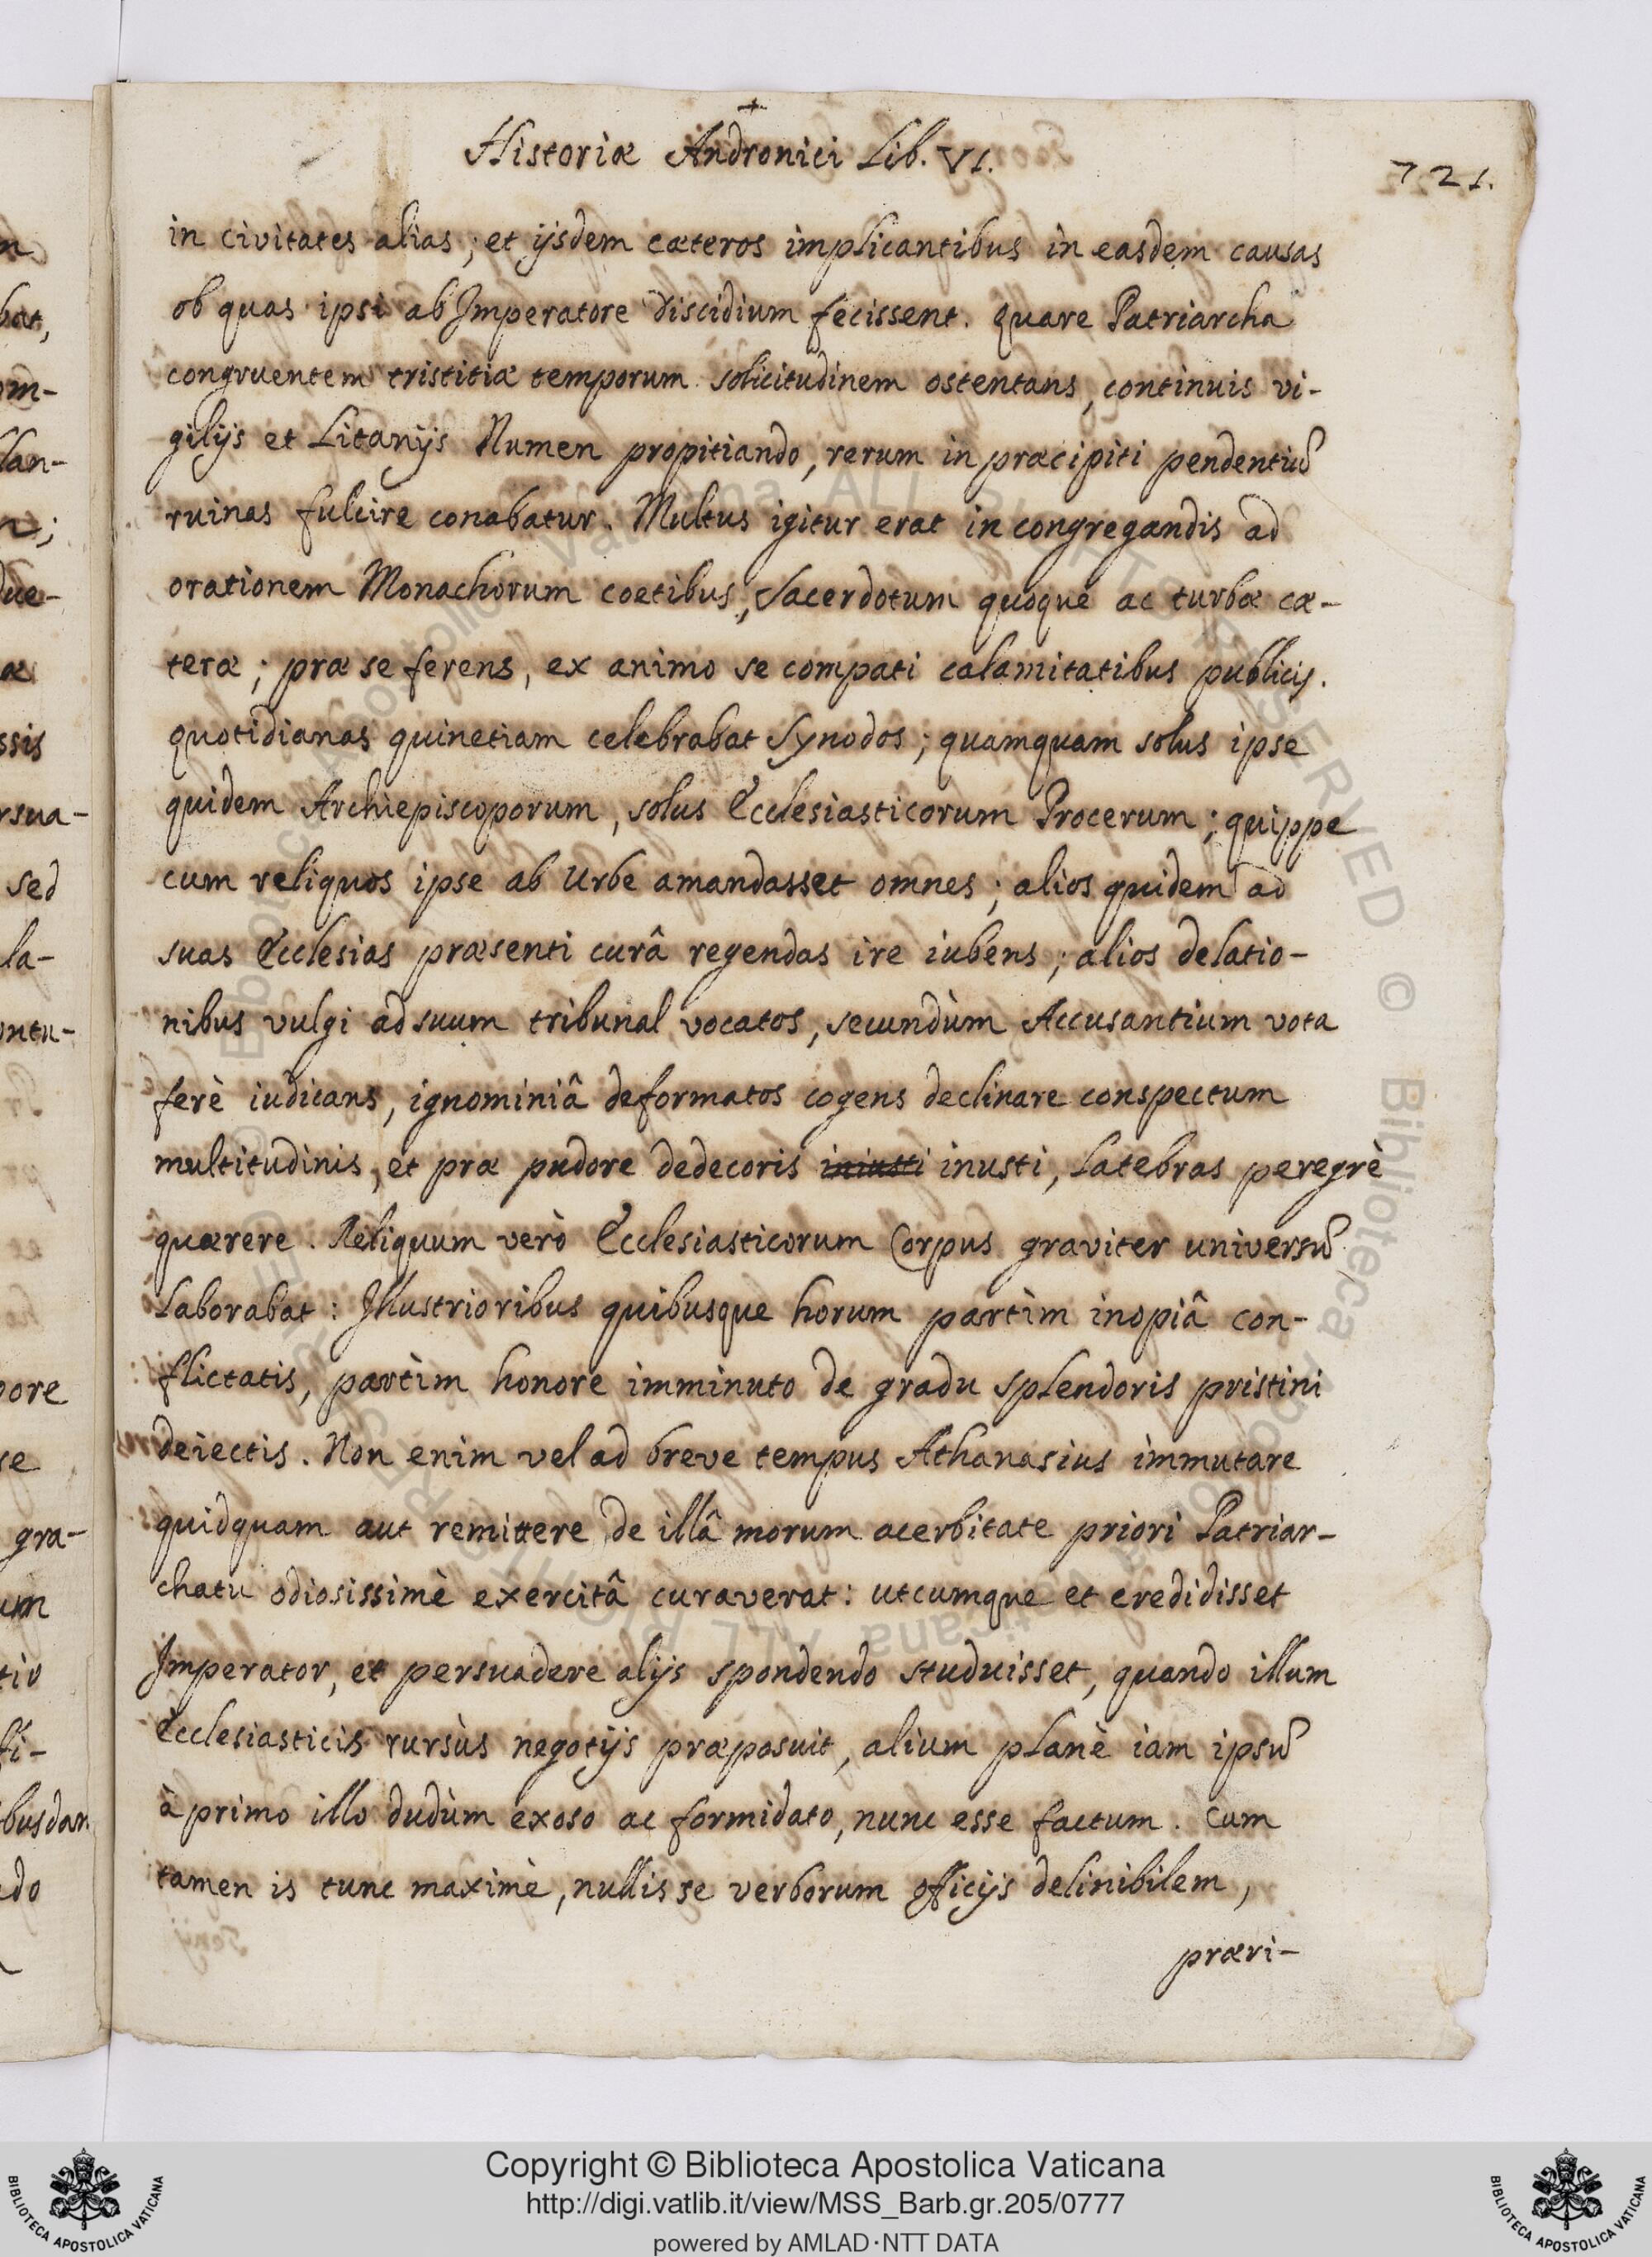 Historiæ Andronici Lib. VI.
721.
in civitates alias; et ijsdem cæteros implicantibus in easdem causas
ob quas ipsi ab Imperatore discidium fecissent. quare Patriarcha
congruentem tristitiæ temporum solicitudinem ostentans, continuis vi-
gilijs et Litanijs Numen propitiando, rerum in præcipiti pendentiũ
ruinas fulcire conabatur. Multus igitur erat in congregandis ad
orationem Monachorum coetibus, Sacerdotum quoque ac turbæ cæ-
teræ; præ se ferens, ex animo se compati calamitatibus publicis.
quotidianas quinetiam celebrabat Synodos; quamquam solus ipse
quidem Archiepiscoporum, solus Ecclesiasticorum Procerum; quippe
cum reliquos ipse ab Urbe amandasset omnes; alios quidem ad
suas Ecclesias præsenti curâ regendas ire iubens; alios delatio-
nibus vulgi ad suum tribunal vocatos, secundùm Accusantium vota
ferè iudicans, ignominiâ deformatos cogens declinare conspectum
multitudinis, et præ pudore dedecoris iniusti inusti, latebras peregrè
quærere. Reliquum verò Ecclesiasticorum Corpus graviter universũ
laborabat: Illustrioribus quibusque horum partìm inopiâ con-
flictatis, partìm honore imminuto de gradu splendoris pristini
deiectis. Non enim vel ad breve tempus Athanasius immutare
quidquam aut remittere de illâ morum acerbitate priori Patriar-
chatu odiosissimè exercitâ curaverat: utcumque et credidisset
Imperator, et persuadere alijs spondendo studuisset, quando illum
Ecclesiasticis rursùs negotijs præposuit, alium planè iam ipsũ
à primo illo dudùm exoso ac formidato, nunc esse factum. Cum
tamen is tunc maximè, nullis se verborum officijs delinibilem,
præri-
Copyright © Biblioteca Apostolica Vaticana
http://digi.vatlib.it/view/MSS_Barb.gr.205/0777
powered by AMLAD·NTT DATA